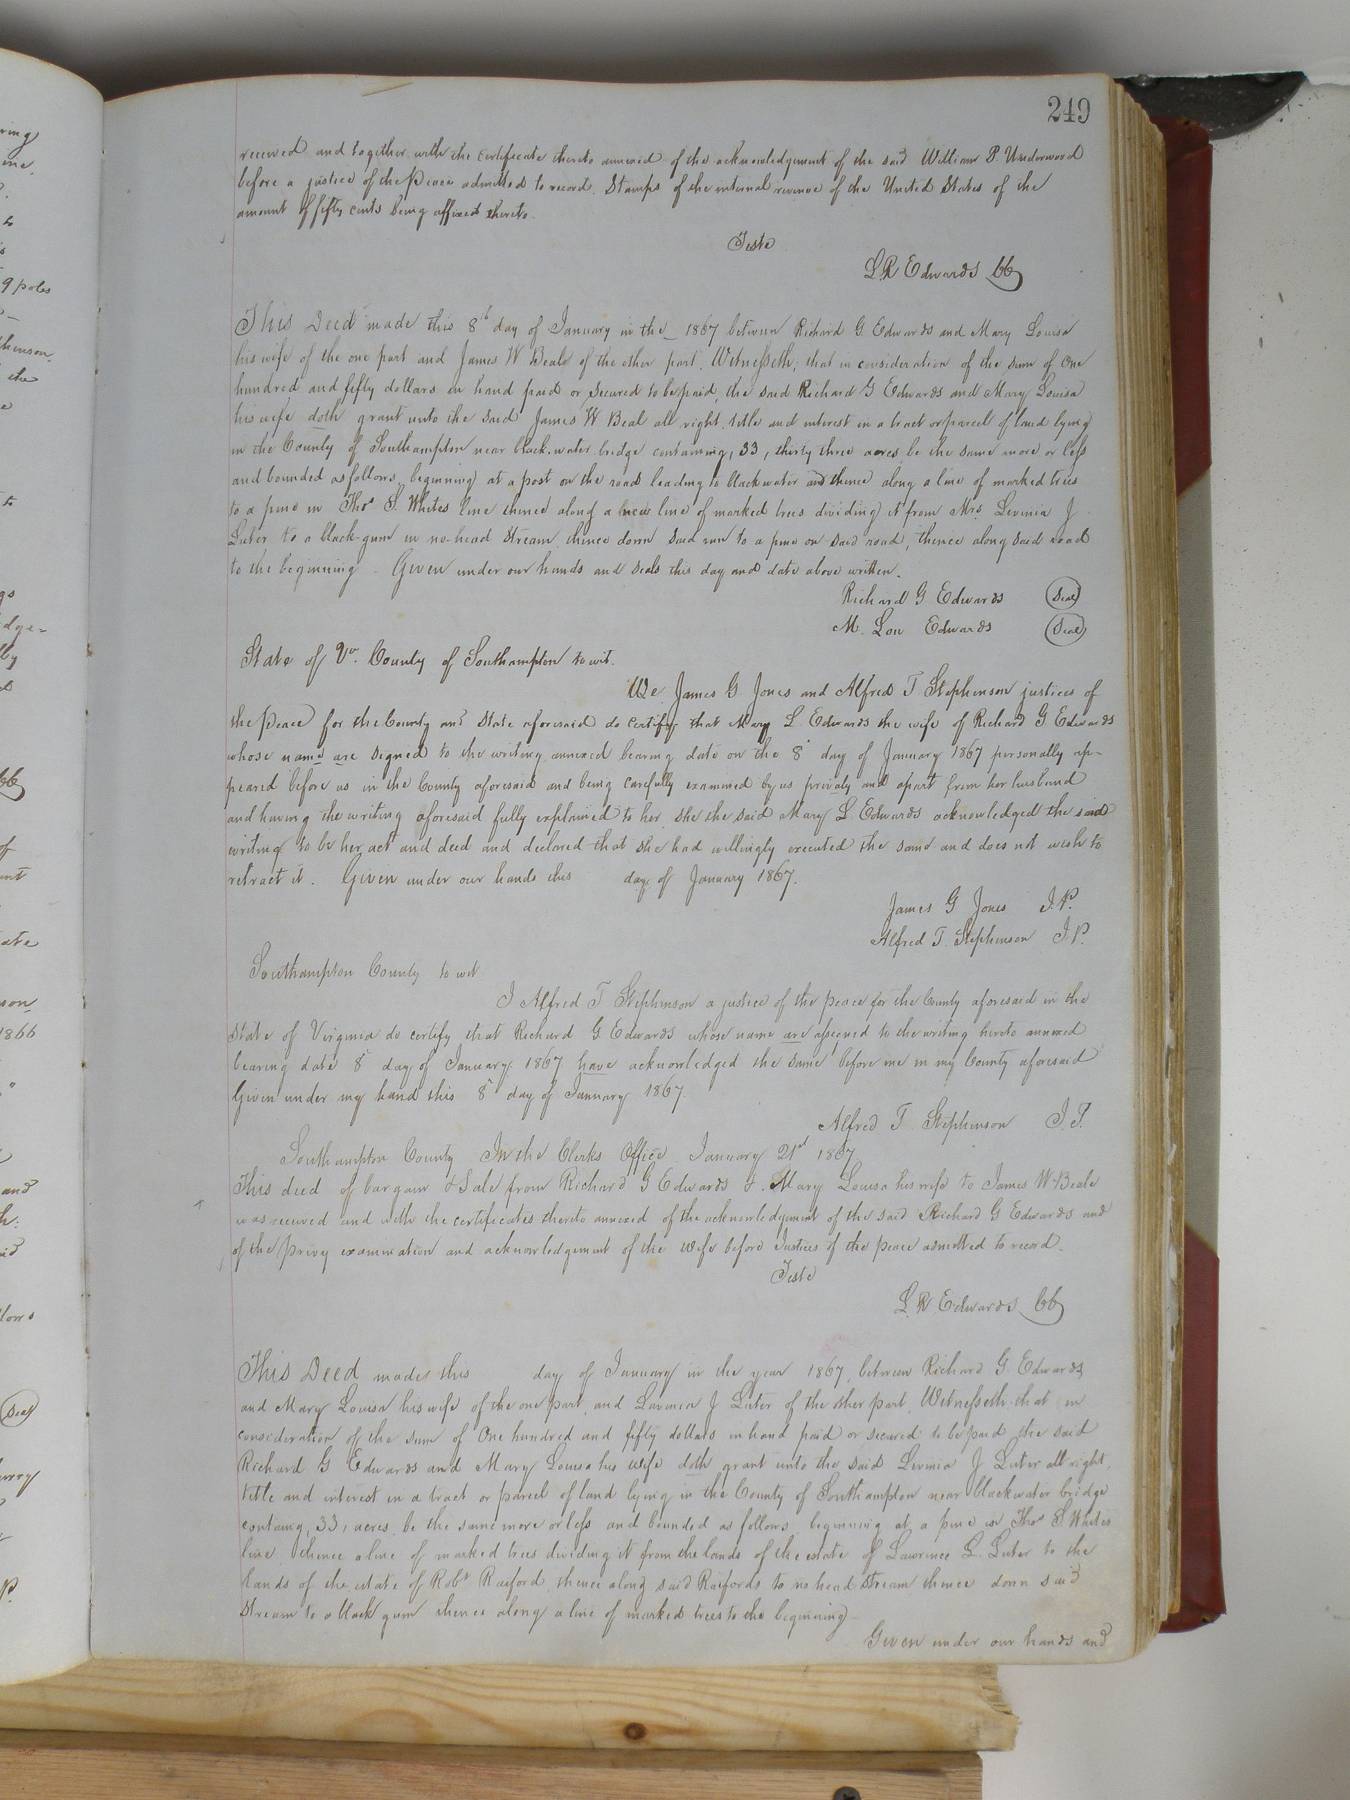 249
received and together with the certificate thereto annexed of the acknowledgement of the said William P. Underwood
before a justice of the Peace admitted to record. Stamps of the internal revenue of the United States of the
amount of fifty cents being affixed thereto.
Teste
L.R Edwards CC
This Deed made this 8th day of January in the 1867 between Richard G. Edwards and Mary Louisa
his wife of the one part and James W Beale of the other part. Witnesseth, that in consideration of the sum of One
hundred and fifty dollars in hand paid or secured to be paid, the said Richard G Edwards and Mary Louisa
his wife doth grant unto the said James W Beal all right, title and interest in a tract or parcel of land lying
in the County of Southampton near black-water bridge containing, 33, thirty three acres be the same more or less
and bounded as follows, beginning at a post on the road leading to blackwater and thence along a line of marked trees
to a pine in Thos S. Whites line thence along a new line of marked trees dividing it from Mrs. Levinia J
Luter to a black-gum in no-head Stream, thence down said run to a pine on said road, thence along said road
to the beginning. Given under our hands and seals this day and date above written.
Richard G Edwards (Seal)
M. Lou Edwards (Seal)
State of Va. County of Southampton to wit.
We James G Jones and Alfred T Stephenson justices of
the Peace for the County and State aforesaid do certify that Mary L Edwards the wife of Richard G Edwards
whose name are signed to the writing annexed bearing date on the 8th day of January 1867 personally ap-
peared before us in the County aforesaid and being carefully examined by us privaly and apart from her husband
and having the writing aforesaid fully explained to her, she the said Mary L Edwards acknowledged the said
writing to be her act and deed and declared that she had willingly executed the same and does not wish to
retract it. Given under our hands this day of January 1867.
James G Jones J.P.
Alfred T. Stephenson J.P.
Southampton County to wit
I Alfred T Stephenson a justice of the peace for the County aforesaid in the
State of Virginia do certify that Richard G Edwards whose name are assigned to the writing hereto annexed
bearing date 8th day of January 1867 have acknowledged the same before me in my County aforesaid
Given under my hand this 8th day of January 1867.
Alfred T. Stephenson J.P.
Southampton County In the Clerks Office January 21st 1867
This deed of bargain & Sale from Richard G Edwards & Mary Louisa his wife to James W Beale
was received and with the certificates thereto annexed of the acknowledgement of the said Richard G Edwards and
of the Privy examination and acknowledgement of the wife before Justices of the peace admitted to record.
Teste
L.R Edwards CC
This Deed made this day of January in the year 1867, between Richard G Edwards
and Mary Louisa his wife of the one part, and Lavinia J Luter of the other part. Witnesseth that in
consideration of the sum of One hundred and fifty dollars in hand paid or secured to be paid, the said
Richard G Edwards and Mary Louisa his wife doth grant unto the said Levinia J Luter all right,
title and interest in a tract or parcel of land lying in the County of Southampton near blackwater bridge
containg, 33, acres be the same more or less and bounded as follows, beginning at a pine in Thos S Whites
line thence a line of marked trees dividing it from the lands of the estate of Lawrence L. Luter to the
lands of the estate of Robt Raiford, thence along said Raifords to no head Stream thence down said
Stream to a black gum thence along a line of marked trees to the beginning
Given under our hands and